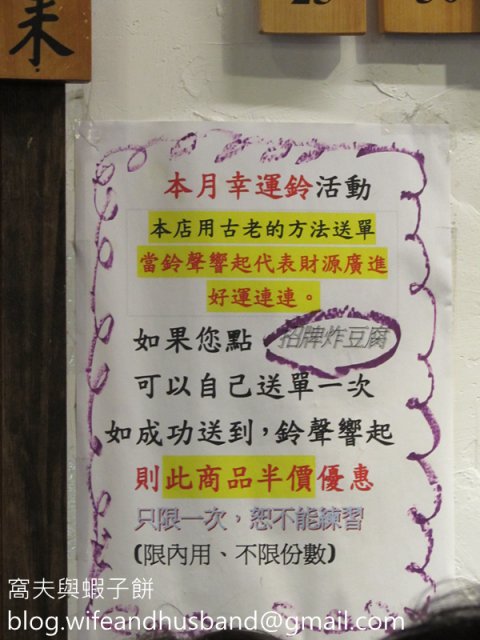 本月幸運鈴活動
本店用古老的方法送單
當鈴聲響起代表財源廣進
好運連連。
如果您點 招牌炸豆腐
可以自己送單一次
如成功送到，鈴聲響起
則此商品半價優惠
只限一次，恕不能練習
(限內用、不限份數)
窩夫與蝦子餅
blog.wifeandhusband@gmail.com